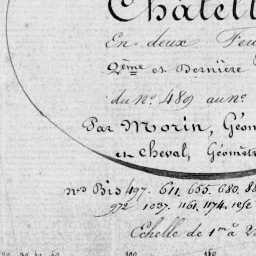 Châtell
En deux Feu
2ème et Dernière
du nº 489 au nº
Par Morin, Géom
et Cheval, Géomètr
nos Bis 497. 611. 655. 680. 88
972 1037. 1161. 1174.
Echelle de 1 m à